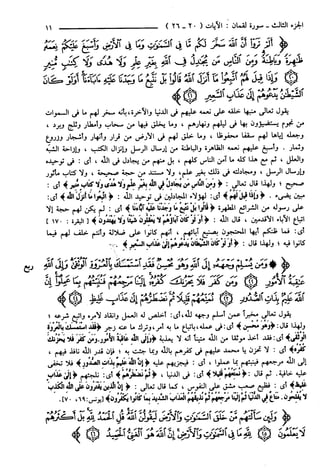 الجزء الثالث - سورة لقمان : الآيات ( ٢٠ - ٢٦ ) ١١
﴿ أَلَمْ تَرَوْا أَنَّ اللَّهَ سَخَّرَ لَكُم مَّا فِي السَّمَوَاتِ وَمَا فِي الْأَرْضِ وَأَسْبَغَ عَلَيْكُمْ نِعَمَهُ
ظَاهِرَةً وَبَاطِنَةً وَمِنَ النَّاسِ مَن يُجَادِلُ فِي اللَّهِ بِغَيْرِ عِلْمٍ وَلَا هُدًى وَلَا كِتَابٍ مُّنِيرٍ
﴿٢٠﴾ وَإِذَا قِيلَ لَهُمُ اتَّبِعُوا مَا أَنزَلَ اللَّهُ قَالُوا بَلْ نَتَّبِعُ مَا وَجَدْنَا عَلَيْهِ آبَاءَنَا أَوَلَوْ كَانَ
الشَّيْطَانُ يَدْعُوهُمْ إِلَى عَذَابِ السَّعِيرِ ﴿٢١﴾ ﴾
يقول تعالى منبها خلقه على نعمه عليهم فى الدنيا والآخرة، بأنه سخر لهم ما فى السموات
من نجوم يستضيؤون بها فى ليلهم ونهارهم ، وما يخلق فيها من سحاب وأمطار وثلج وبرد ،
وجعله إياها لهم سقفا محفوظا ، وما خلق لهم فى الأرض من قرار وأنهار وأشجار وزروع
وثمار . وأسبغ عليهم نعمه الظاهرة والباطنة من إرسال الرسل وإنزال الكتب ، وإزاحة الشبه
والعلل ، ثم مع هذا كله ما آمن الناس كلهم ، بل منهم من يجادل فى الله ، أى : فى توحيده
وإرسال الرسل ، ومجادلته فى ذلك بغير علم، ولا مستند من حجة صحيحة ، ولا كتاب مأثور
صحيح ، ولهذا قال تعالى : ﴿ وَمِنَ النَّاسِ مَن يُجَادِلُ فِي اللَّهِ بِغَيْرِ عِلْمٍ وَلَا هُدًى وَلَا كِتَابٍ مُّنِيرٍ ﴾ أى :
مبين يضىء . ﴿ وَإِذَا قِيلَ لَهُمُ ﴾ أى: لهؤلاء المجادلين فى توحيد الله : ﴿ اتَّبِعُوا مَا أَنزَلَ اللَّهُ ﴾ أى:
على رسوله من الشرائع المطهرة ﴿ قَالُوا بَلْ نَتَّبِعُ مَا وَجَدْنَا عَلَيْهِ آبَاءَنَا ﴾ أى : لم يكن لهم حجة إلا
اتباع الآباء الأقدمين ، قال الله : ﴿ أَوَلَوْ كَانَ آبَاؤُهُمْ لَا يَعْقِلُونَ شَيْئًا وَلَا يَهْتَدُونَ ﴾ [ البقرة : ١٧٠ ]
أى: فما ظنكم أيها المحتجون بصنيع آبائهم ، أنهم كانوا على ضلالة وأنتم خلف لهم فيما
كانوا فيه ، ولهذا قال : ﴿ أَوَلَوْ كَانَ الشَّيْطَانُ يَدْعُوهُمْ إِلَى عَذَابِ السَّعِيرِ ﴾ .
﴿ وَمَن يُسْلِمْ وَجْهَهُ إِلَى اللَّهِ وَهُوَ مُحْسِنٌ فَقَدِ اسْتَمْسَكَ بِالْعُرْوَةِ الْوُثْقَى وَإِلَى اللَّهِ
ربع
عَاقِبَةُ الْأُمُورِ ﴿٢٢﴾ وَمَن كَفَرَ فَلَا يَحْزُنكَ كُفْرُهُ إِلَيْنَا مَرْجِعُهُمْ فَنُنَبِّئُهُم بِمَا عَمِلُوا إِنَّ اللَّهَ عَلِيمٌ
بِذَاتِ الصُّدُورِ ﴿٢٣﴾ نُمَتِّعُهُمْ قَلِيلًا ثُمَّ نَضْطَرُّهُمْ إِلَى عَذَابٍ غَلِيظٍ ﴿٢٤﴾ ﴾
يقول تعالى مخبراً عمن أسلم وجهه لله، أى: أخلص له العمل وانقاد لأمره واتبع شرعه ؛
ولهذا قال: ﴿ وَهُوَ مُحْسِنٌ ﴾ أى: فى عمله، باتباع ما به أمر، وترك ما عنه زجر ﴿ فَقَدِ اسْتَمْسَكَ بِالْعُرْوَةِ
الْوُثْقَى ﴾ أى: فقد أخذ موثقا من الله متينا أنه لا يعذبه ﴿ وَإِلَى اللَّهِ عَاقِبَةُ الْأُمُورِ . وَمَن كَفَرَ فَلَا يَحْزُنكَ
كُفْرُهُ ﴾ أى : لا تحزن يا محمد عليهم فى كفرهم بالله وبما جئت به ؛ فإن قدر الله نافذ فيهم ،
وإلى الله مرجعهم فينبئهم بما عملوا ، أى : فيجزيهم عليه ﴿ إِنَّ اللَّهَ عَلِيمٌ بِذَاتِ الصُّدُورِ ﴾ فلا تخفى
عليه خافية. ثم قال : ﴿ نُمَتِّعُهُمْ قَلِيلًا ﴾ أى : فى الدنيا ، ﴿ ثُمَّ نَضْطَرُّهُمْ ﴾ أى: نلجئهم ﴿ إِلَى عَذَابٍ
غَلِيظٍ ﴾ أى : فظيع صعب مشق على النفوس ، كما قال تعالى : ﴿ إِنَّ الَّذِينَ يَفْتَرُونَ عَلَى اللَّهِ الْكَذِبَ
لَا يُفْلِحُونَ . مَتَاعٌ فِي الدُّنْيَا ثُمَّ إِلَيْنَا مَرْجِعُهُمْ ثُمَّ نُذِيقُهُمُ الْعَذَابَ الشَّدِيدَ بِمَا كَانُوا يَكْفُرُونَ ﴾ [يونس: ٦٩، ٧٠].
﴿ وَلَئِن سَأَلْتَهُم مَّنْ خَلَقَ السَّمَوَاتِ وَالْأَرْضَ لَيَقُولُنَّ اللَّهُ قُلِ الْحَمْدُ لِلَّهِ بَلْ أَكْثَرُهُمْ
لَا يَعْلَمُونَ ﴿٢٥﴾ لِلَّهِ مَا فِي السَّمَوَاتِ وَالْأَرْضِ إِنَّ اللَّهَ هُوَ الْغَنِيُّ الْحَمِيدُ ﴿٢٦﴾ ﴾